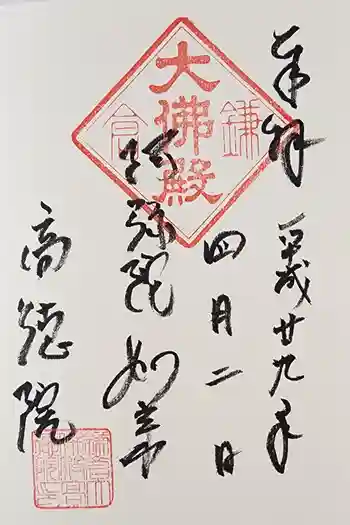 奉拝
平成廿九年
四月二日
阿弥陀如来
高徳院
鎌倉
大佛殿